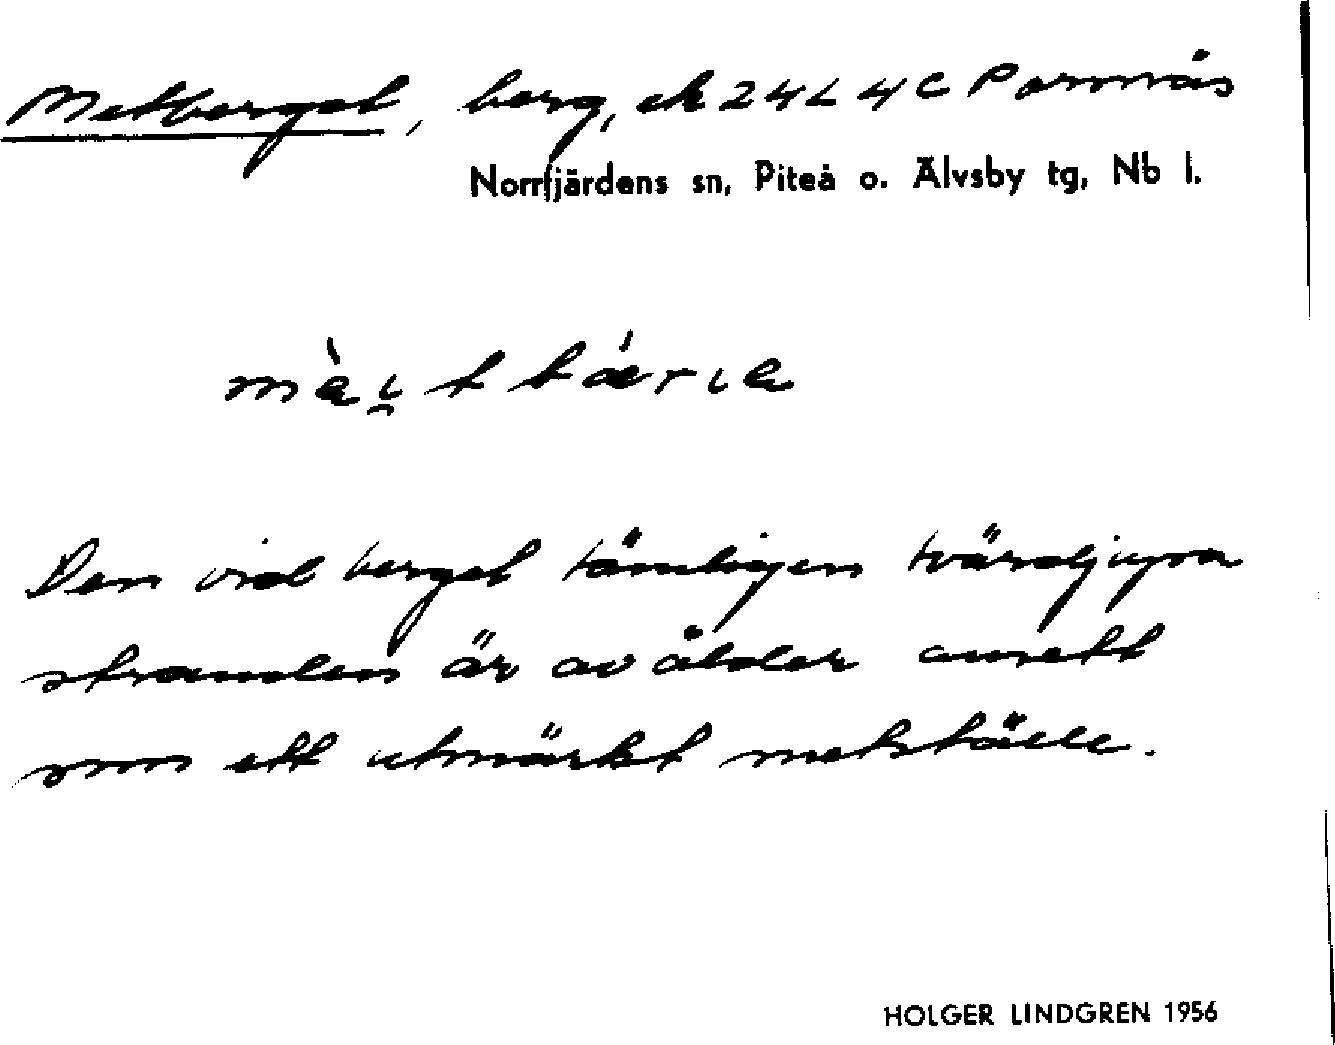 Metberget, berg, ek 24L 4C Porsnäs
Norrfjärdens sn, Piteå o. Älvsby tg, Nb l.
mèi̯t bǽrıe
Den vid berget tämligen tvärdjupa
stranden är av ålder ansett
som ett utmärkt metställe.
HOLGER LINDGREN 1956